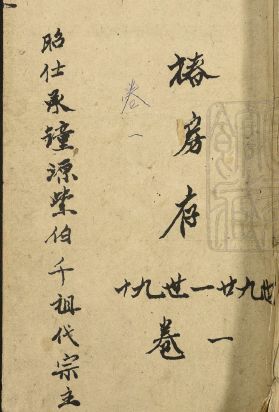 椿房存
十九世一廿九世
卷一
卷一
昭仕承鐘源紫伯千祖代宗主